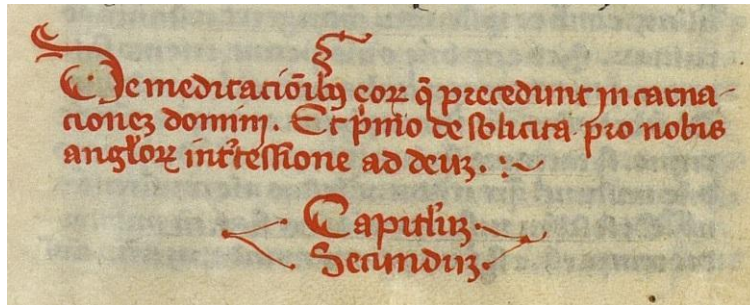 De meditacio̅ibꝰ eoꝝ q̅ precedunt in carna-
cionez domini. Et p̅mo de solicita pro nobis
angl̕oꝝ int̕cessione ad deuz.
Capitl̕uz
Secunduz